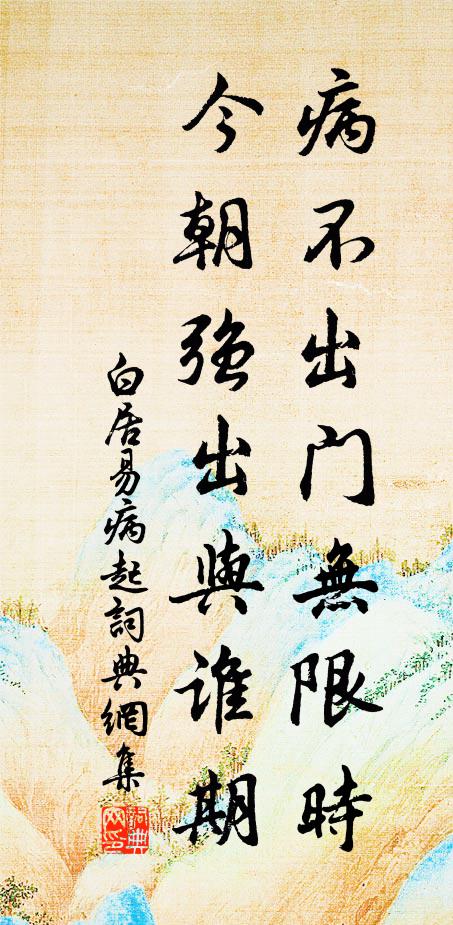 病不出门無限時
今朝强出與誰期
白居易病起詞典網集
詞典
网印